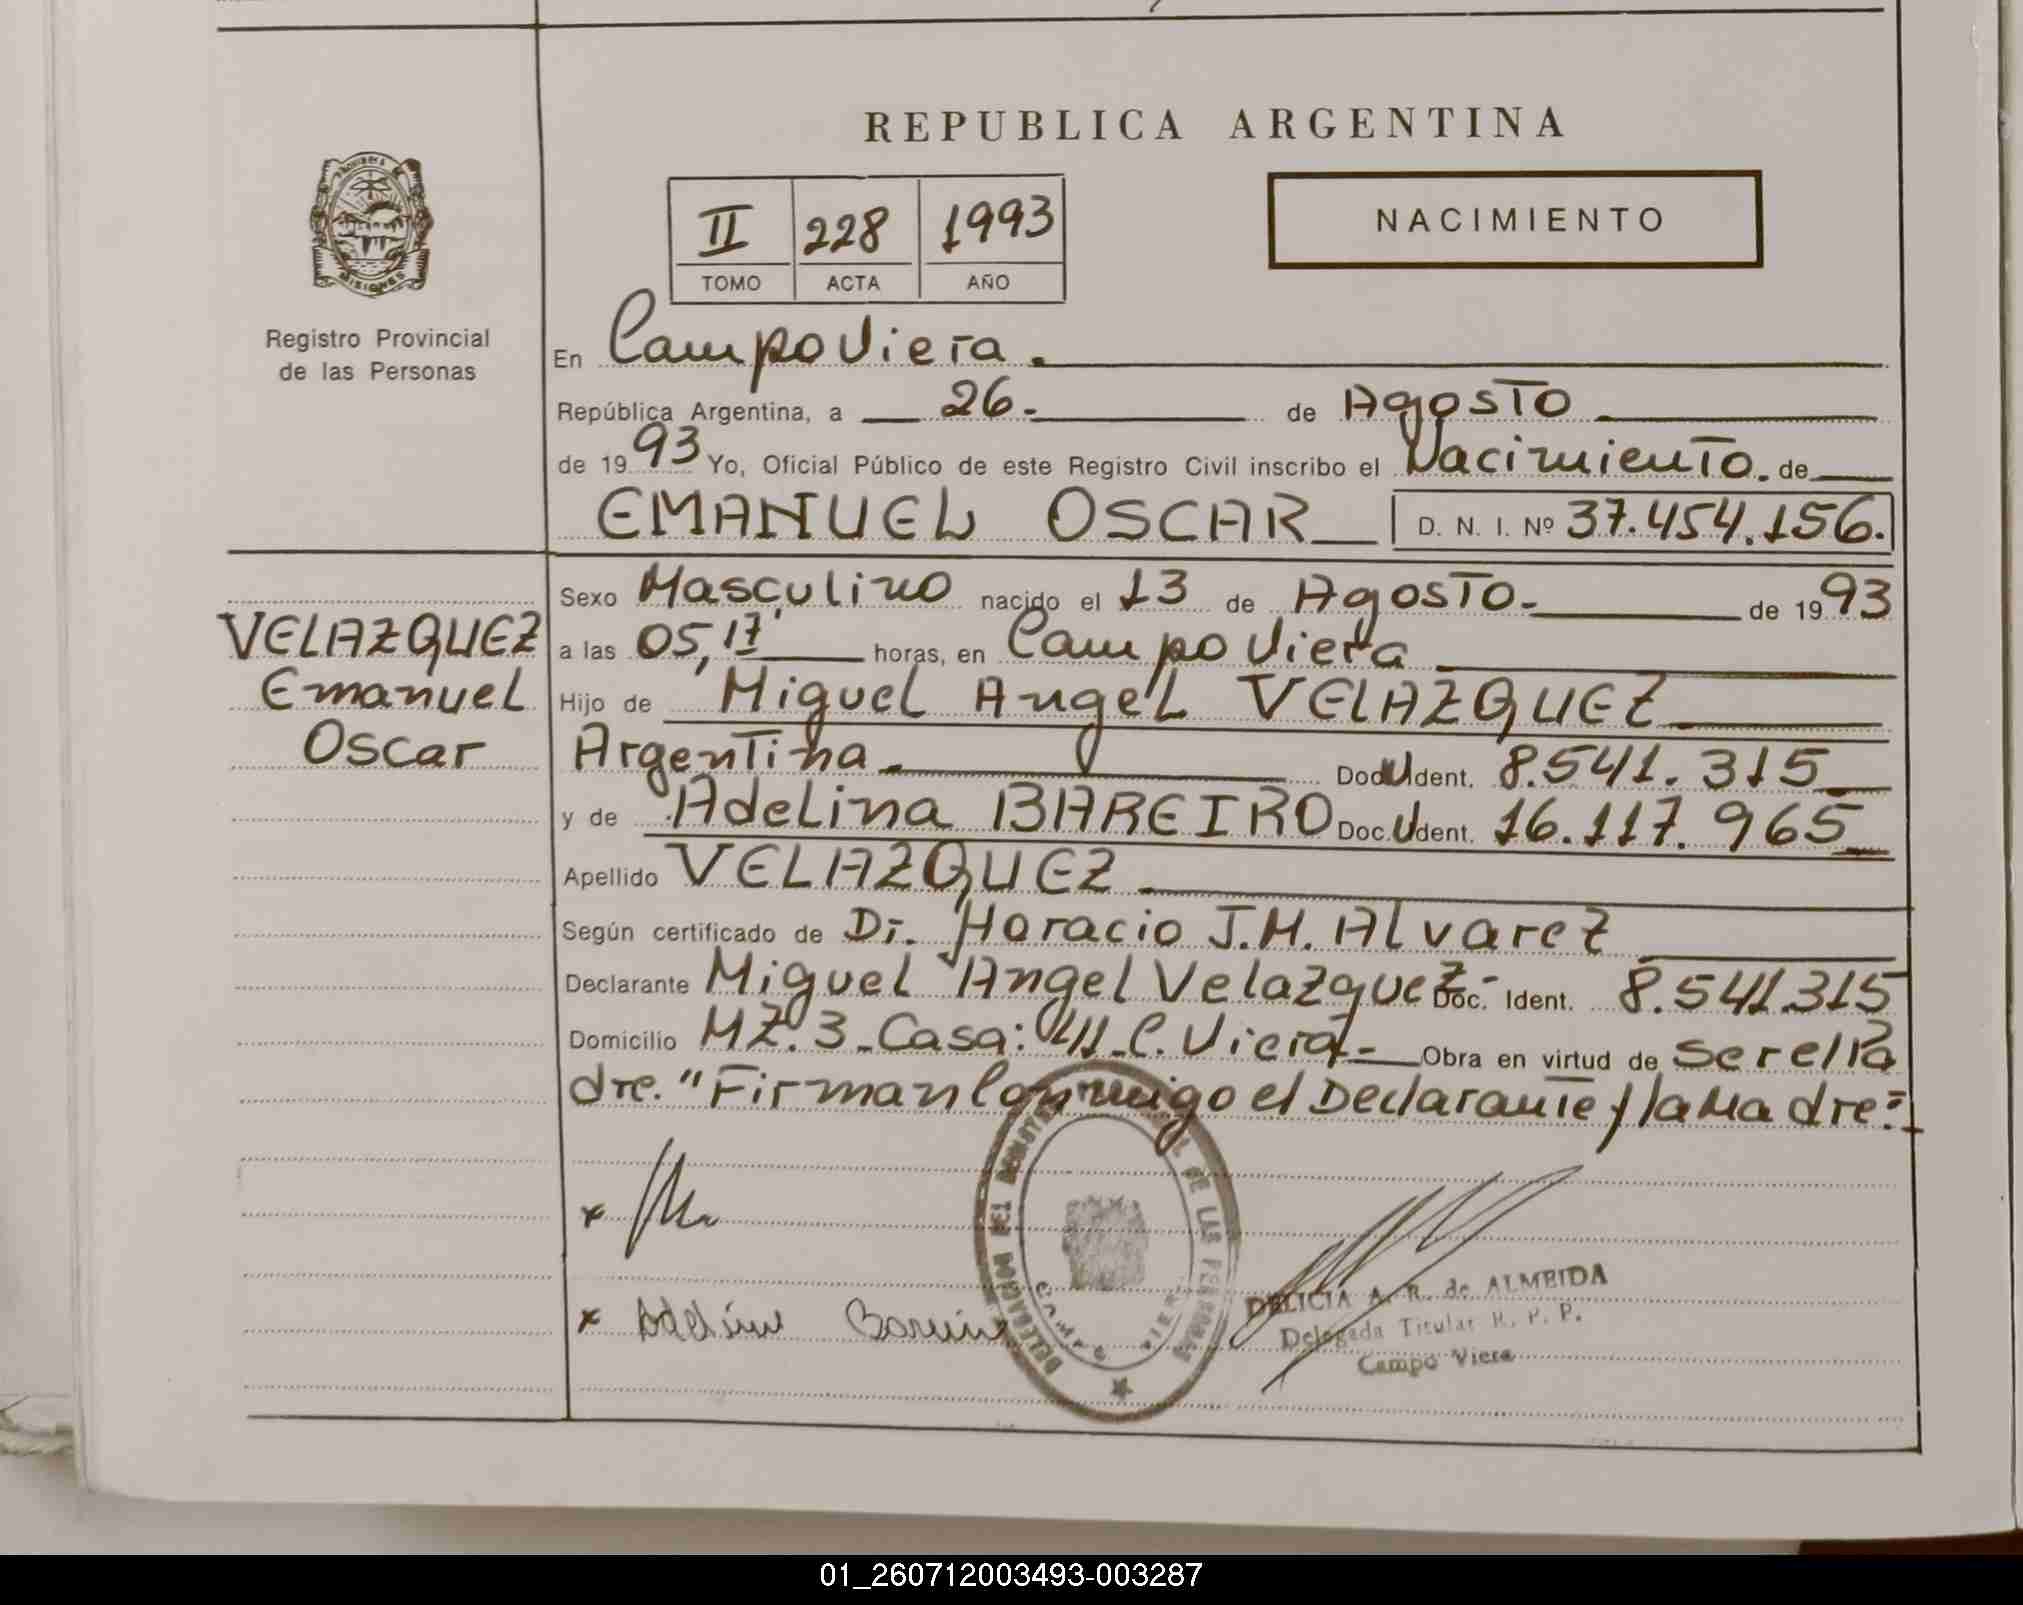 REPUBLICA ARGENTINA
PROVINCIA
MISIONES
Registro Provincial
de las Personas
II 228 1993
TOMO ACTA AÑO
NACIMIENTO
En Campo Viera.
República Argentina, a 26. de Agosto
de 1993 Yo, Oficial Público de este Registro Civil inscribo el Nacimiento. de
EMANUEL OSCAR D. N. I. Nº 37.454.156.
VELAZQUEZ
Emanuel
Oscar
Sexo Masculino nacido el 13 de Agosto.- de 1993
a las 05,17' horas, en Campo Viera
Hijo de Miguel Angel VELAZQUEZ
Argentina.- Doc. U Ident. 8.541.315
y de Adelina BAREIRO Doc. U Ident. 16.117.965
Apellido VELAZQUEZ.-
Según certificado de Dr. Horacio J.M. Alvarez
Declarante Miguel Angel Velazquez.- Doc. Ident. 8.541.315
Domicilio MZ. 3-Casa: 41-C. Viera.- Obra en virtud de ser el Pa
dre. "Firman Conmigo el Declarante y la Madre:-
x
x Adelina Bareiro
DELEGACION DEL REGISTRO DE LAS PERSONAS
CAMPO VIERA
DELICIA A. R. de ALMEIDA
Delegada Titular R. P. P.
Campo Viera
01_260712003493-003287